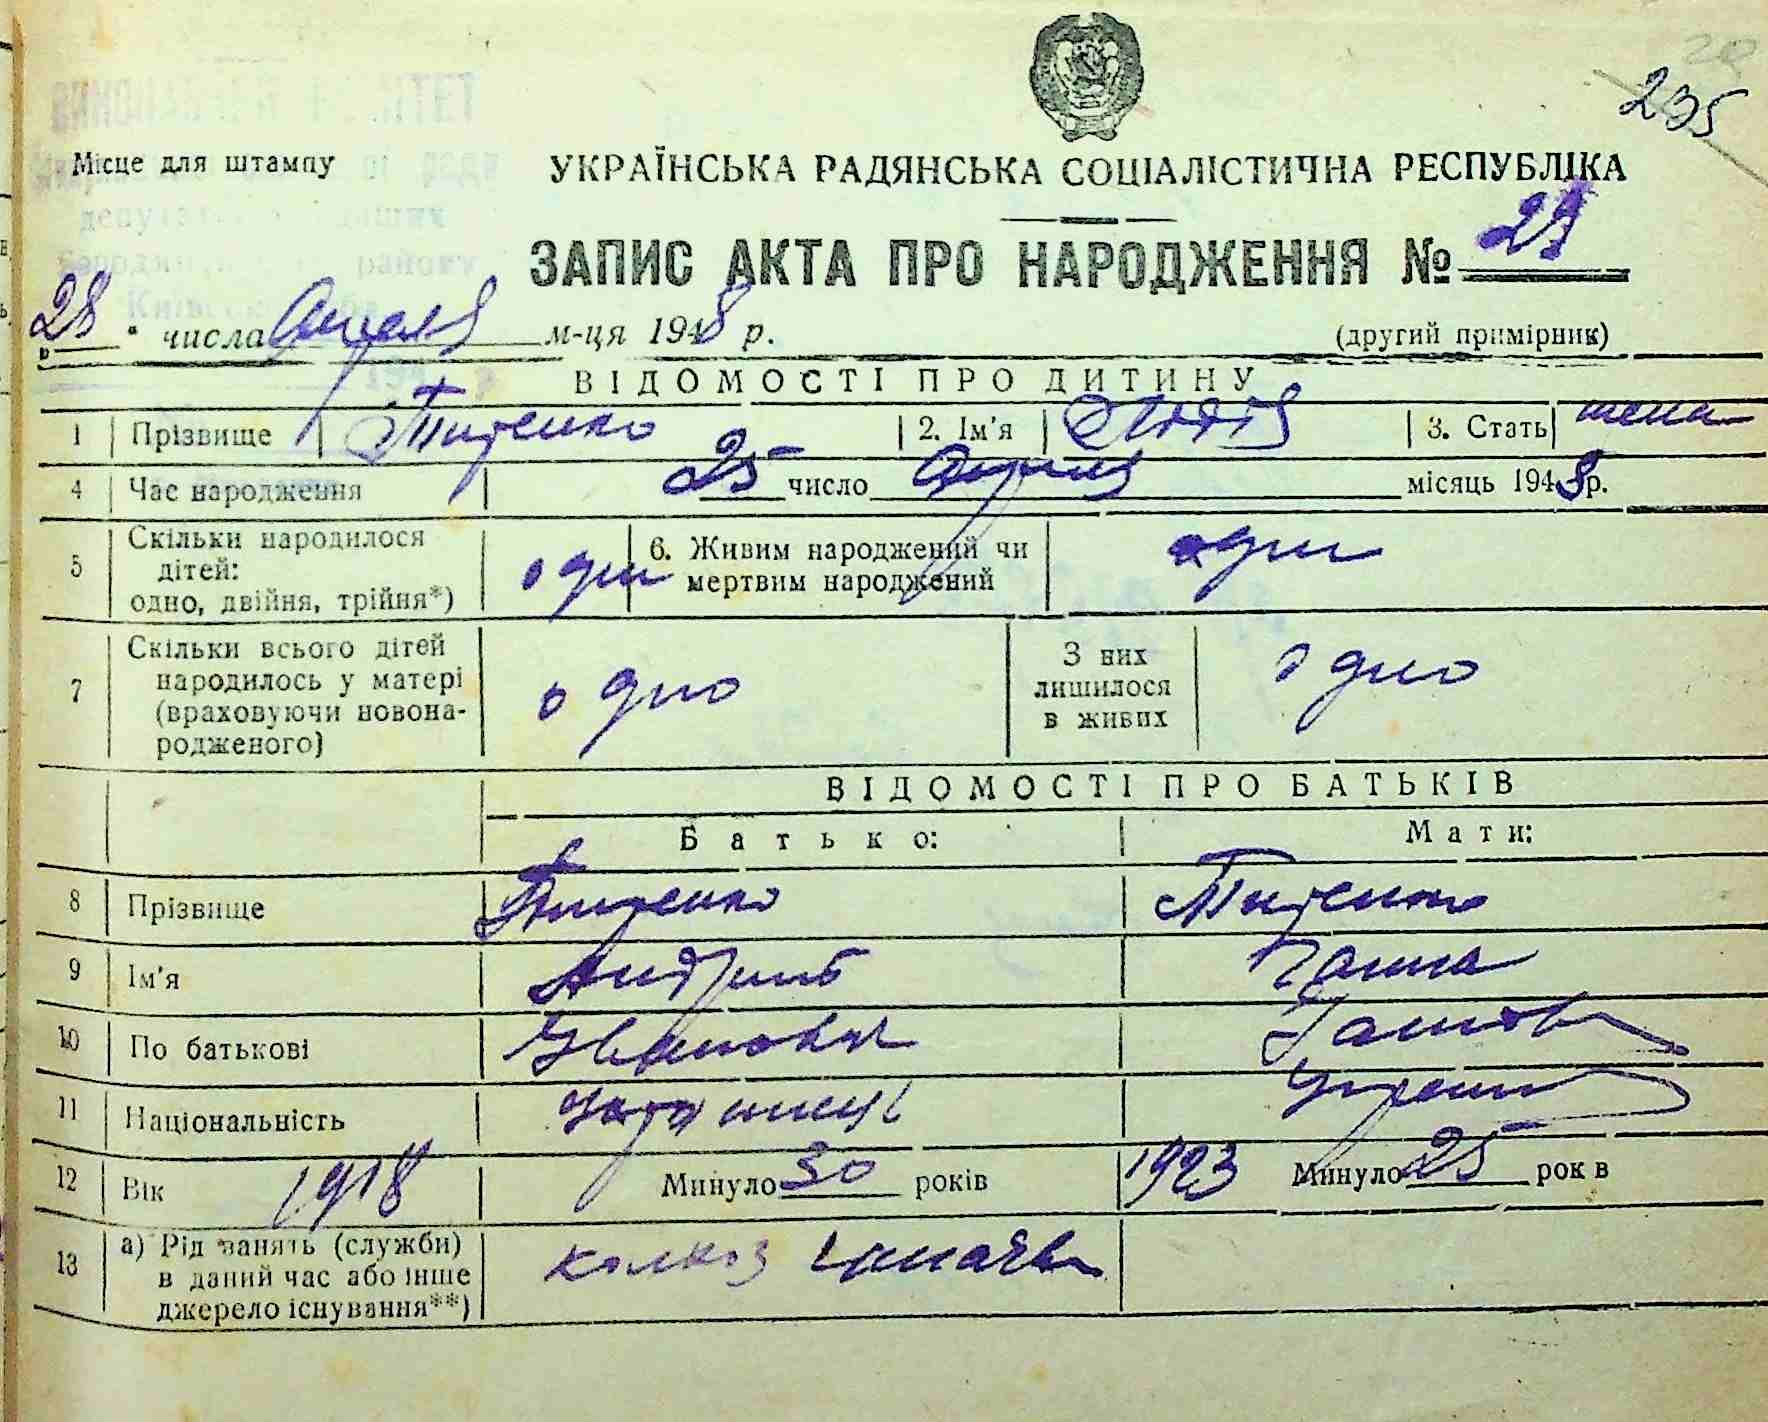 235
Місце для штампу
УКРАЇНСЬКА РАДЯНСЬКА СОЦІАЛІСТИЧНА РЕСПУБЛІКА
ЗАПИС АКТА ПРО НАРОДЖЕННЯ №
„28“ числа Апреля м-ця 1948 р.
(другий примірник)
ВІДОМОСТІ ПРО ДИТИНУ
1 Прізвище Тищенко 2. Ім'я Лідія 3. Стать жена
4 Час народження 25 число Апреля місяць 1948 р.
5 Скільки народилося дітей: одно, двійня, трійня*) 6. Живим народжений чи мертвим народжений
7 Скільки всього дітей народилось у матері (враховуючи новонародженого) одно З них лишилося в живих одно
ВІДОМОСТІ ПРО БАТЬКІВ
Батько: Мати:
8 Прізвище Тищенко Тищенко
9 Ім'я Ганна
10 По батькові Иванович
11 Національність
12 Вік 1918 Минуло 30 років 1923 Минуло 25 років
13 а) Рід занять (служби) в даний час або інше джерело існування**) колхоз Чапаева